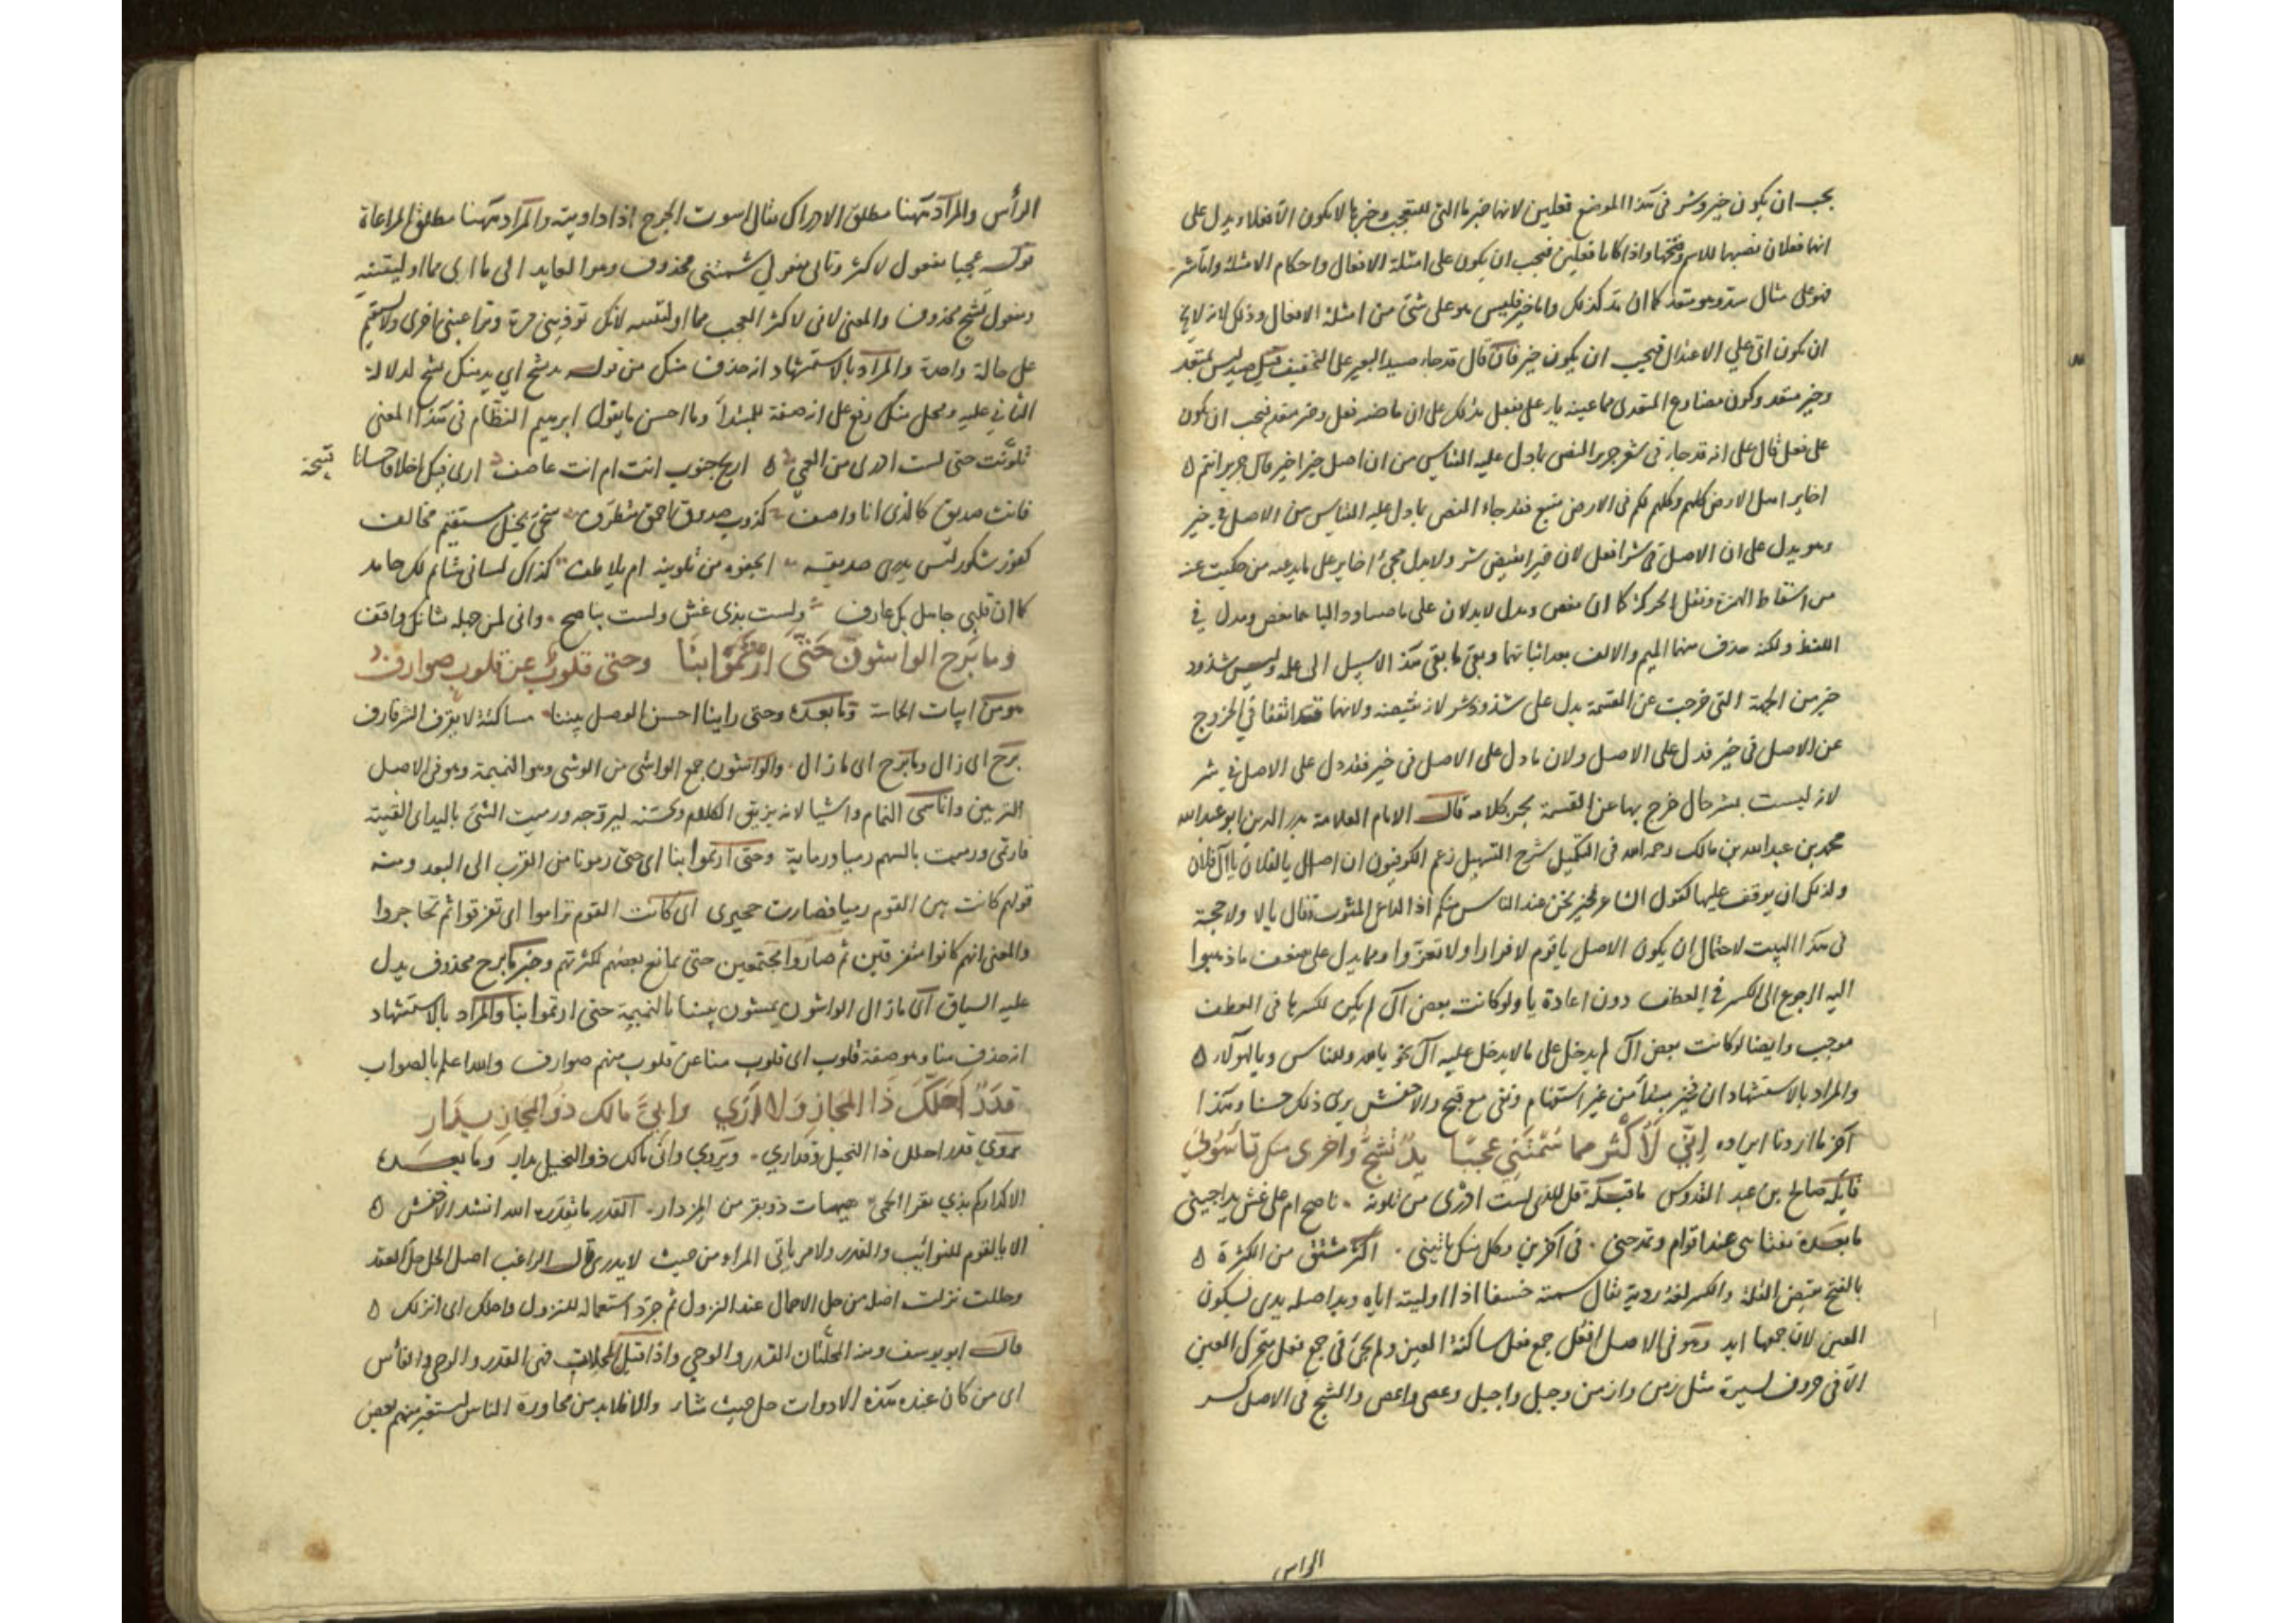 يجب ان يكون خير وشر فى هذا الموضع فعلين لانها خبر ما التى للتعجب وخبرها لا يكون الا فعلا ويدل على
انهما فعلان نصبهما للاسم وفتحهما واذا كانا فعلين فيجب ان يكون على امثلة الافعال واحكام الامثلة واما شر
فهو على مثال ستد وهو متعد كما ان مد كذلك واما خير فليس هو على شئ من امثلة الافعال وذلك لانه لا يخ
ان يكون اتى على الاعتدال فيجب ان يكون خير فان قال قد جاء صيد البعير على التخفيف قيل صيد ليس بمتعد
وخير متعد وكون مضارع المتعدى مما عينه ياء على يفعل يدلك على ان ماضيه فعل وخير متعد فيجب ان يكون
على فعل قال على انه قد جاء فى شعر جرير النص بما دل عليه القياس من ان اصل خير اخير قال جرير انتم ه
اخاير اهل الارض كلهم وكلهم لكم فى الارض متبع فقد جاء النص بما دل عليه القياس من الاصل فى خير
وهو يدل على ان الاصل فى شر افعل لان خيرا نقيض شر ولا يدل مجئ اخاير على ما يدعيه من حكيت عنه
من اسقاط الهمزة ونقل الحركة كما ان مفعل لا يدلان على
اللفظ ولكنه حذف منهما الميم والالف بعد اثباتهما وبقى ما بقى هذا لا سبيل الى علمه وليس شذوذ
خير من الجهة التى خرجت عن القسمة يدل على شذوذ شر لانه نقيضه ولانهما قد اتفقا فى الخروج
عن الاصل فى خير فدل على الاصل ولان ما دل على الاصل فى خير فقد دل على الاصل فى شر
لانه ليست بشر حال خرج بها عن القسمة بحر كلامه قال الامام العلامة بدر الدين ابو عبد الله
محمد بن عبد الله بن مالك رحمه الله فى التكميل شرح التسهيل زعم الكوفيون ان اصل يا لفلان يا آل فلان
ولذلك ان يوقف عليها كقول الشاعر فخير نحن عند الناس منكم اذا الداعى المثوب قال يا لا ولا حجة
فى هذا البيت لاحتمال ان يكون الاصل يا قوم لا فرارا ولا تعزوا ومما يدل على ضعف ما ذهبوا
اليه الرجوع الى الكسر فى العطف دون اعادة يا ولو كانت بعض آل لم يكن لكسرها فى العطف
موجب وايضا لو كانت بعض آل لم يدخل على ما لا يدخل عليه آل نحو يا لله وللناس ويا لهولاء ه
والمراد بالاستشهاد ان خير مبتدأ من غير استفهام ونفى مع قبح والاخفش يرى ذلك حسنا وهذا
آخر ما اردنا ايراده اِنِّي لَأَكْثَرُ مما سُمْتَنِي عجبًا يدٌ تَشُجُّ واخرى منك تأسوني
قايله صالح بن عبد القدوس ما قبله قل للذى لست ادرى من تلونه ه ناصح ام على غش يداجينى
ما بعده تغتابنى عند اقوام وتمدحنى ه فى آخرين وكل منك ياتينى ه اكثر مشتق من الكثرة ه
بالفتح نقيض القلة والكسر لغة ردية يقال سمته خسفا اذا اوليته اياه ويد اصله يدى بسكون
العين لان جمعها ايد وهو فى الاصل افعل جمع فعل ساكنة العين ولم يجئ فى جمع فعل متحرك العين
الا فى حروف يسيرة مثل زمن وازمن وجبل واجبل وعصى واعصى والشج فى الاصل كسر
الراس
الرأس والمراد ههنا مطلق الادراك يقال اسوت الجرح اذا داويته والمراد ههنا مطلق المراعاة
قوله عجبا مفعول لاكثر وثانى مفعولى سمتنى محذوف وهو العايد الى ما اى مما اوليتنيه
ومفعول تشج محذوف والمعنى لانى لاكثر العجب مما اوليتنيه لانك توذينى مرة وتراعينى اخرى ولا تستقيم
على حالة واحدة والمراد بالاستشهاد انه حذف منك من قوله يد تشج اى يد منك تشج لدلالة
الثانى عليه ومحل منك رفع على انه صفة للمبتدأ وما احسن ما يقول ابرهيم النظام فى هذا المعنى
تلونت حتى لست ادرى من العمى ه اريح جنوب انت ام انت عاصف ه ارى فيك اخلاقا حسانا قبيحة
فانت صديق كالذى انا واصف ه كذوب صدوق احمق متظرف ه سخى بخيل مستقيم مخالف
كفور شكور ليس يدرى صديقه ه ايجفوه من تلوينه ام يلاطف ه كذاك لسانى شاتم لك حامد
كما ان قلبى جاهل بك عارف ه ولست بذى غش ولست بناصح ه وانى لمن جهله شانك واقف
وما بَرِحَ الواشونَ حَتَّى اِرتَمَوْا بِنَا وحتى قلوبٌ عن قلوبٍ صوارف
هو من ابيات الحماسة وما بعده وحتى راينا احسن الوصل بيننا ه مساكتة لا يقرف الشر قارف
برح اى زال وما برح اى ما زال ه والواشون جمع الواشى من الوشى وهو النميمة وهو فى الاصل
التزيين وانما سمى النمام واشيا لانه يزين الكلام وحسنه ليروجه ورميت الشئ باليد اى القيته
فارتمى ورميت بالسهم رميا ورماية وحتى ارتموا بنا اى حتى رمونا من القرب الى البعد ومنه
قولهم كانت بين القوم رميا فصارت حجيزى اى كانت القوم تراموا اى تعرقوا ثم تحاجزوا
والمعنى انهم كانوا متفرقين ثم صاروا مجتمعين حتى يمانع بعضهم لكثرتهم وخبر ما برح محذوف يدل
عليه السياق اى ما زال الواشون يمشون بيننا بالنميمة حتى ارتموا بنا والمراد بالاستشهاد
انه حذف منا وهو صفة قلوب اى قلوب منا عن قلوب منهم صوارف والله اعلم بالصواب
قَدَرٌ اَحَلَّكَ ذَا المَجازِ وَلا أرَى وأبِيَّ مالك ذُو المَجازِ بِدَارِ
يروى قدر احلك ذا النخيل وقد ارى ه ويروى وانى مالك ذو النخيل بدار وما بعده
الا كداركم بذى بقر الحمى ه هيهات ذو بقر من المزدار ه القدر ما يقدره الله انشد الاخفش ه
الا يا لقوم للنوائب والقدر ولامر ياتى المراء من حيث لا يدرى قال الراغب اصل الحل حل العقد
وحللت نزلت اصله من حل الاحمال عند النزول ثم جرد استعماله للنزول واحلك اى انزلك ه
قال ابو يوسف ومنه المحلتان القدر والرحى واذا قيل المحلات فهى القدر والرحى والفأس
اى من كان عنده هذه الادوات حل حيث شاء والا فلا بد من مجاورة الناس ليستعير منهم بعض